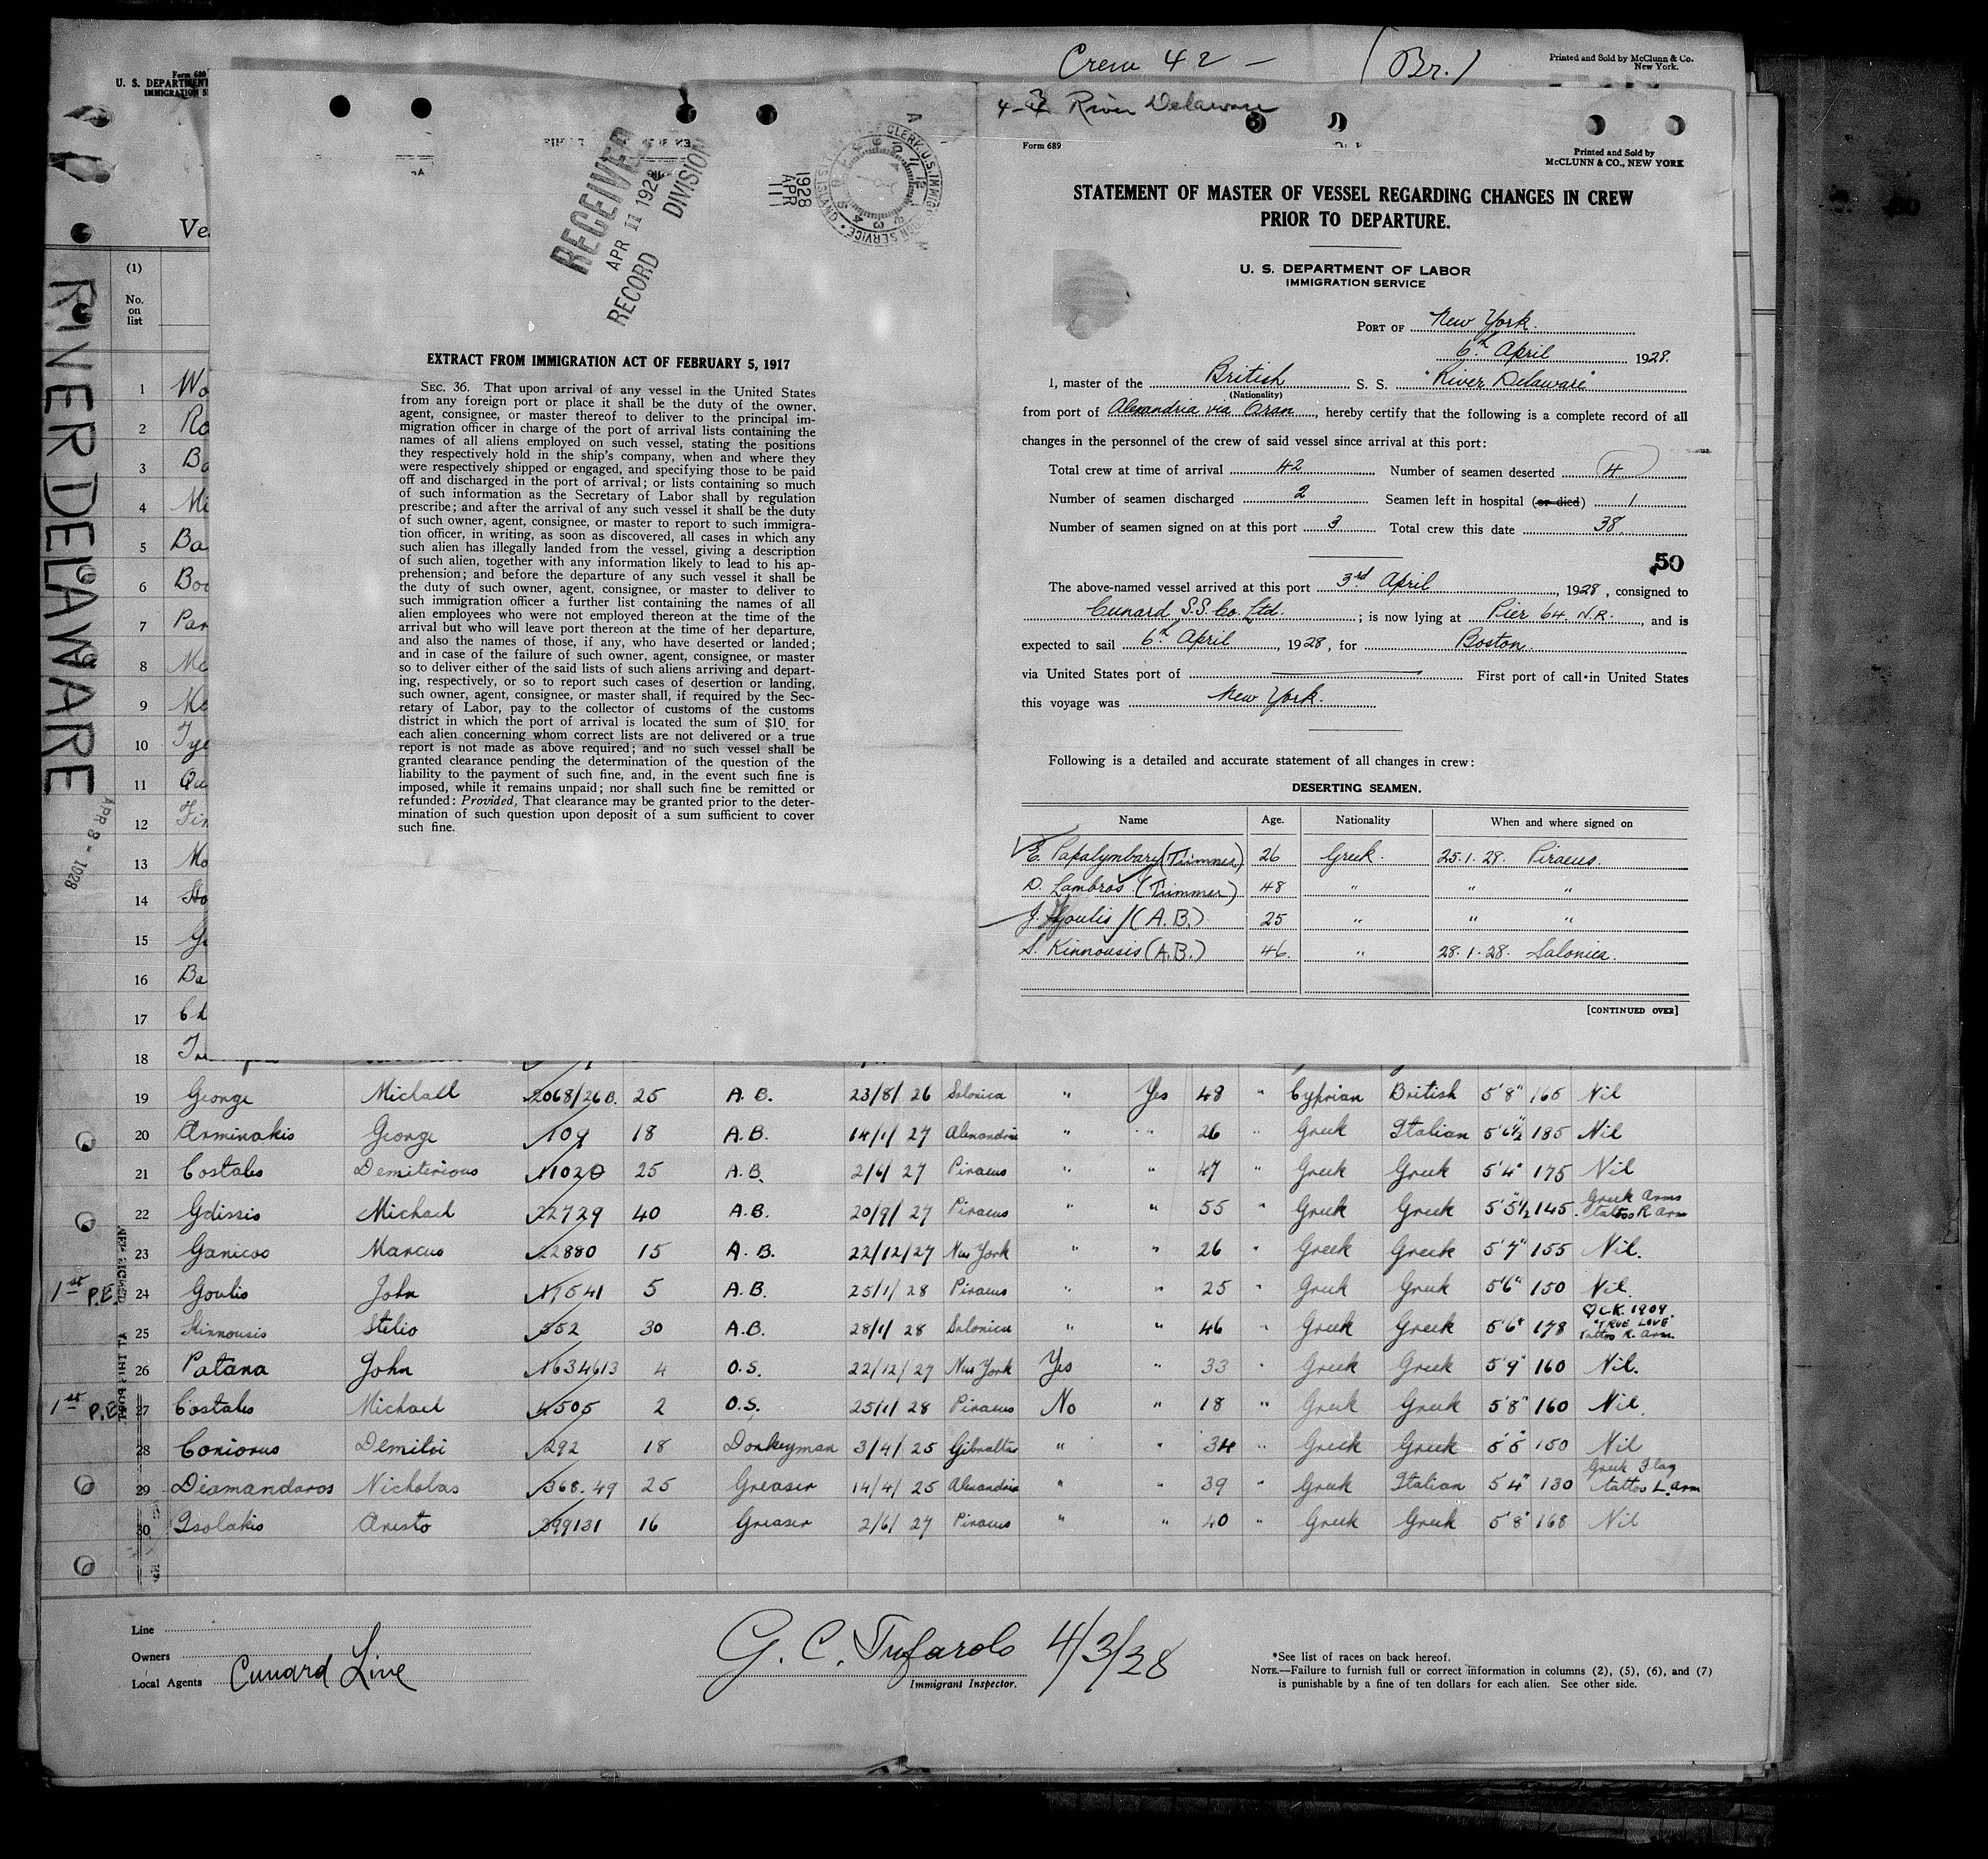 Crew 42 — (Br.)
Printed and Sold by McClunn & Co.
New York.
Form 680
U. S. DEPARTMENT
IMMIGRATION S
Ve
RIVER DELAWARE
APR 3 - 1928
RECEIVED
APR 11 1928
RECORD DIVISION
1928
APR
11
CLERK U.S. IMMIGRATION SERVICE
EXTRACT FROM IMMIGRATION ACT OF FEBRUARY 5, 1917
SEC. 36. That upon arrival of any vessel in the United States
from any foreign port or place it shall be the duty of the owner,
agent, consignee, or master thereof to deliver to the principal im-
migration officer in charge of the port of arrival lists containing the
names of all aliens employed on such vessel, stating the positions
they respectively hold in the ship's company, when and where they
were respectively shipped or engaged, and specifying those to be paid
off and discharged in the port of arrival; or lists containing so much
of such information as the Secretary of Labor shall by regulation
prescribe; and after the arrival of any such vessel it shall be the duty
of such owner, agent, consignee, or master to report to such immigra-
tion officer, in writing, as soon as discovered, all cases in which any
such alien has illegally landed from the vessel, giving a description
of such alien, together with any information likely to lead to his ap-
prehension; and before the departure of any such vessel it shall be
the duty of such owner, agent, consignee, or master to deliver to
such immigration officer a further list containing the names of all
alien employees who were not employed thereon at the time of the
arrival but who will leave port thereon at the time of her departure,
and also the names of those, if any, who have deserted or landed;
and in case of the failure of such owner, agent, consignee, or master
so to deliver either of the said lists of such aliens arriving and depart-
ing, respectively, or so to report such cases of desertion or landing,
such owner, agent, consignee, or master shall, if required by the Sec-
retary of Labor, pay to the collector of customs of the customs
district in which the port of arrival is located the sum of $10 for
each alien concerning whom correct lists are not delivered or a true
report is not made as above required; and no such vessel shall be
granted clearance pending the determination of the question of the
liability to the payment of such fine, and, in the event such fine is
imposed, while it remains unpaid; nor shall such fine be remitted or
refunded: Provided, That clearance may be granted prior to the deter-
mination of such question upon deposit of a sum sufficient to cover
such fine.
4-3 River Delaware
Form 689
Printed and Sold by
McCLUNN & CO., NEW YORK
STATEMENT OF MASTER OF VESSEL REGARDING CHANGES IN CREW
PRIOR TO DEPARTURE.
U. S. DEPARTMENT OF LABOR
IMMIGRATION SERVICE
PORT OF New York.
6th April 1928.
I, master of the British S. S. "River Delaware"
(Nationality)
from port of Alexandria via Oran, hereby certify that the following is a complete record of all
changes in the personnel of the crew of said vessel since arrival at this port:
Total crew at time of arrival 42 Number of seamen deserted 4
Number of seamen discharged 2 Seamen left in hospital (or died) 1
Number of seamen signed on at this port 3 Total crew this date 38.
50
The above-named vessel arrived at this port 3rd April, 1928, consigned to
Cunard S.S. Co. Ltd.; is now lying at Pier 64 N.R., and is
expected to sail 6th April, 1928, for Boston.
via United States port of First port of call in United States
this voyage was New York.
Following is a detailed and accurate statement of all changes in crew:
DESERTING SEAMEN.
Name Age. Nationality When and where signed on
E. Papalymbary (Trimmer) 26 Greek. 25.1.28. Piraeus.
D. Lambros (Trimmer) 48 " " "
J. Goulis (A.B.) 25 " " "
S. Kinnousis (A.B.) 46. " 28.1.28. Salonica.
[CONTINUED OVER]
(1)
No.
on
list
1 Wo
2 Ro
3 Ba
4 Mc
5 Ba
6 Boo
7 Par
8 Mc
9 Mc
10 Tye
11 Qu
12 Fin
13 Mo
14 Sto
15 Ge
16 Ba
17 Ch
18
19 George Michall 2068/26B. 25 A.B. 23/8/26 Salonica " Yes 48 " Cyprian British 5'8" 165 Nil
20 Arminakis George 109 18 A.B. 14/1/27 Alexandria " " 26 " Greek Italian 5'6½ 185 Nil
21 Costales Demiterious 11020 25 A.B. 2/6/27 Piraeus " " 47 " Greek Greek 5'4" 175 Nil
22 Gdissis Michael 22729 40 A.B. 20/9/27 Piraeus " " 55 " Greek Greek 5'5½ 145. Greek Arms tattoo R arm
23 Ganicos Marcus 22880 15 A.B. 22/12/27 New York " " 26 " Greek Greek 5'7" 155 Nil.
1st P.E. 24 Goulis John 17541 5 A.B. 25/1/28 Piraeus " " 25 " Greek Greek 5'6" 150 Nil.
25 Kinnousis Stelio 552 30 A.B. 28/1/28 Salonica " " 46 " Greek Greek 5'6" 178 ♡ C.K. 1909. "TRUE LOVE" Tattoo R. arm.
26 Patana John 1634613 4 O.S. 22/12/27 New York Yes " 33 " Greek Greek 5'9" 160 Nil.
1st P.E. 27 Costales Michael 4505 2 O.S. 25/1/28 Piraeus No " 18 " Greek Greek 5'8" 160 Nil.
28 Coniorus Demitri 292 18 Donkeyman 3/4/25 Gibraltar " " 34 " Greek Greek 5'5" 150 Nil
29 Diamandaros Nicholas 368.49 25 Greaser 14/4/25 Alexandria " " 39 " Greek Italian 5'4" 130 Greek Flag tattoo L. arm
30 Isolakis Aristo 399131 16 Greaser 2/6/27 Piraeus " " 40 " Greek Greek 5'8" 168 Nil
Line
Owners
Local Agents Cunard Line
G. C. Tufarolo 4/3/28
Immigrant Inspector.
*See list of races on back hereof.
NOTE.—Failure to furnish full or correct information in columns (2), (5), (6), and (7)
is punishable by a fine of ten dollars for each alien. See other side.